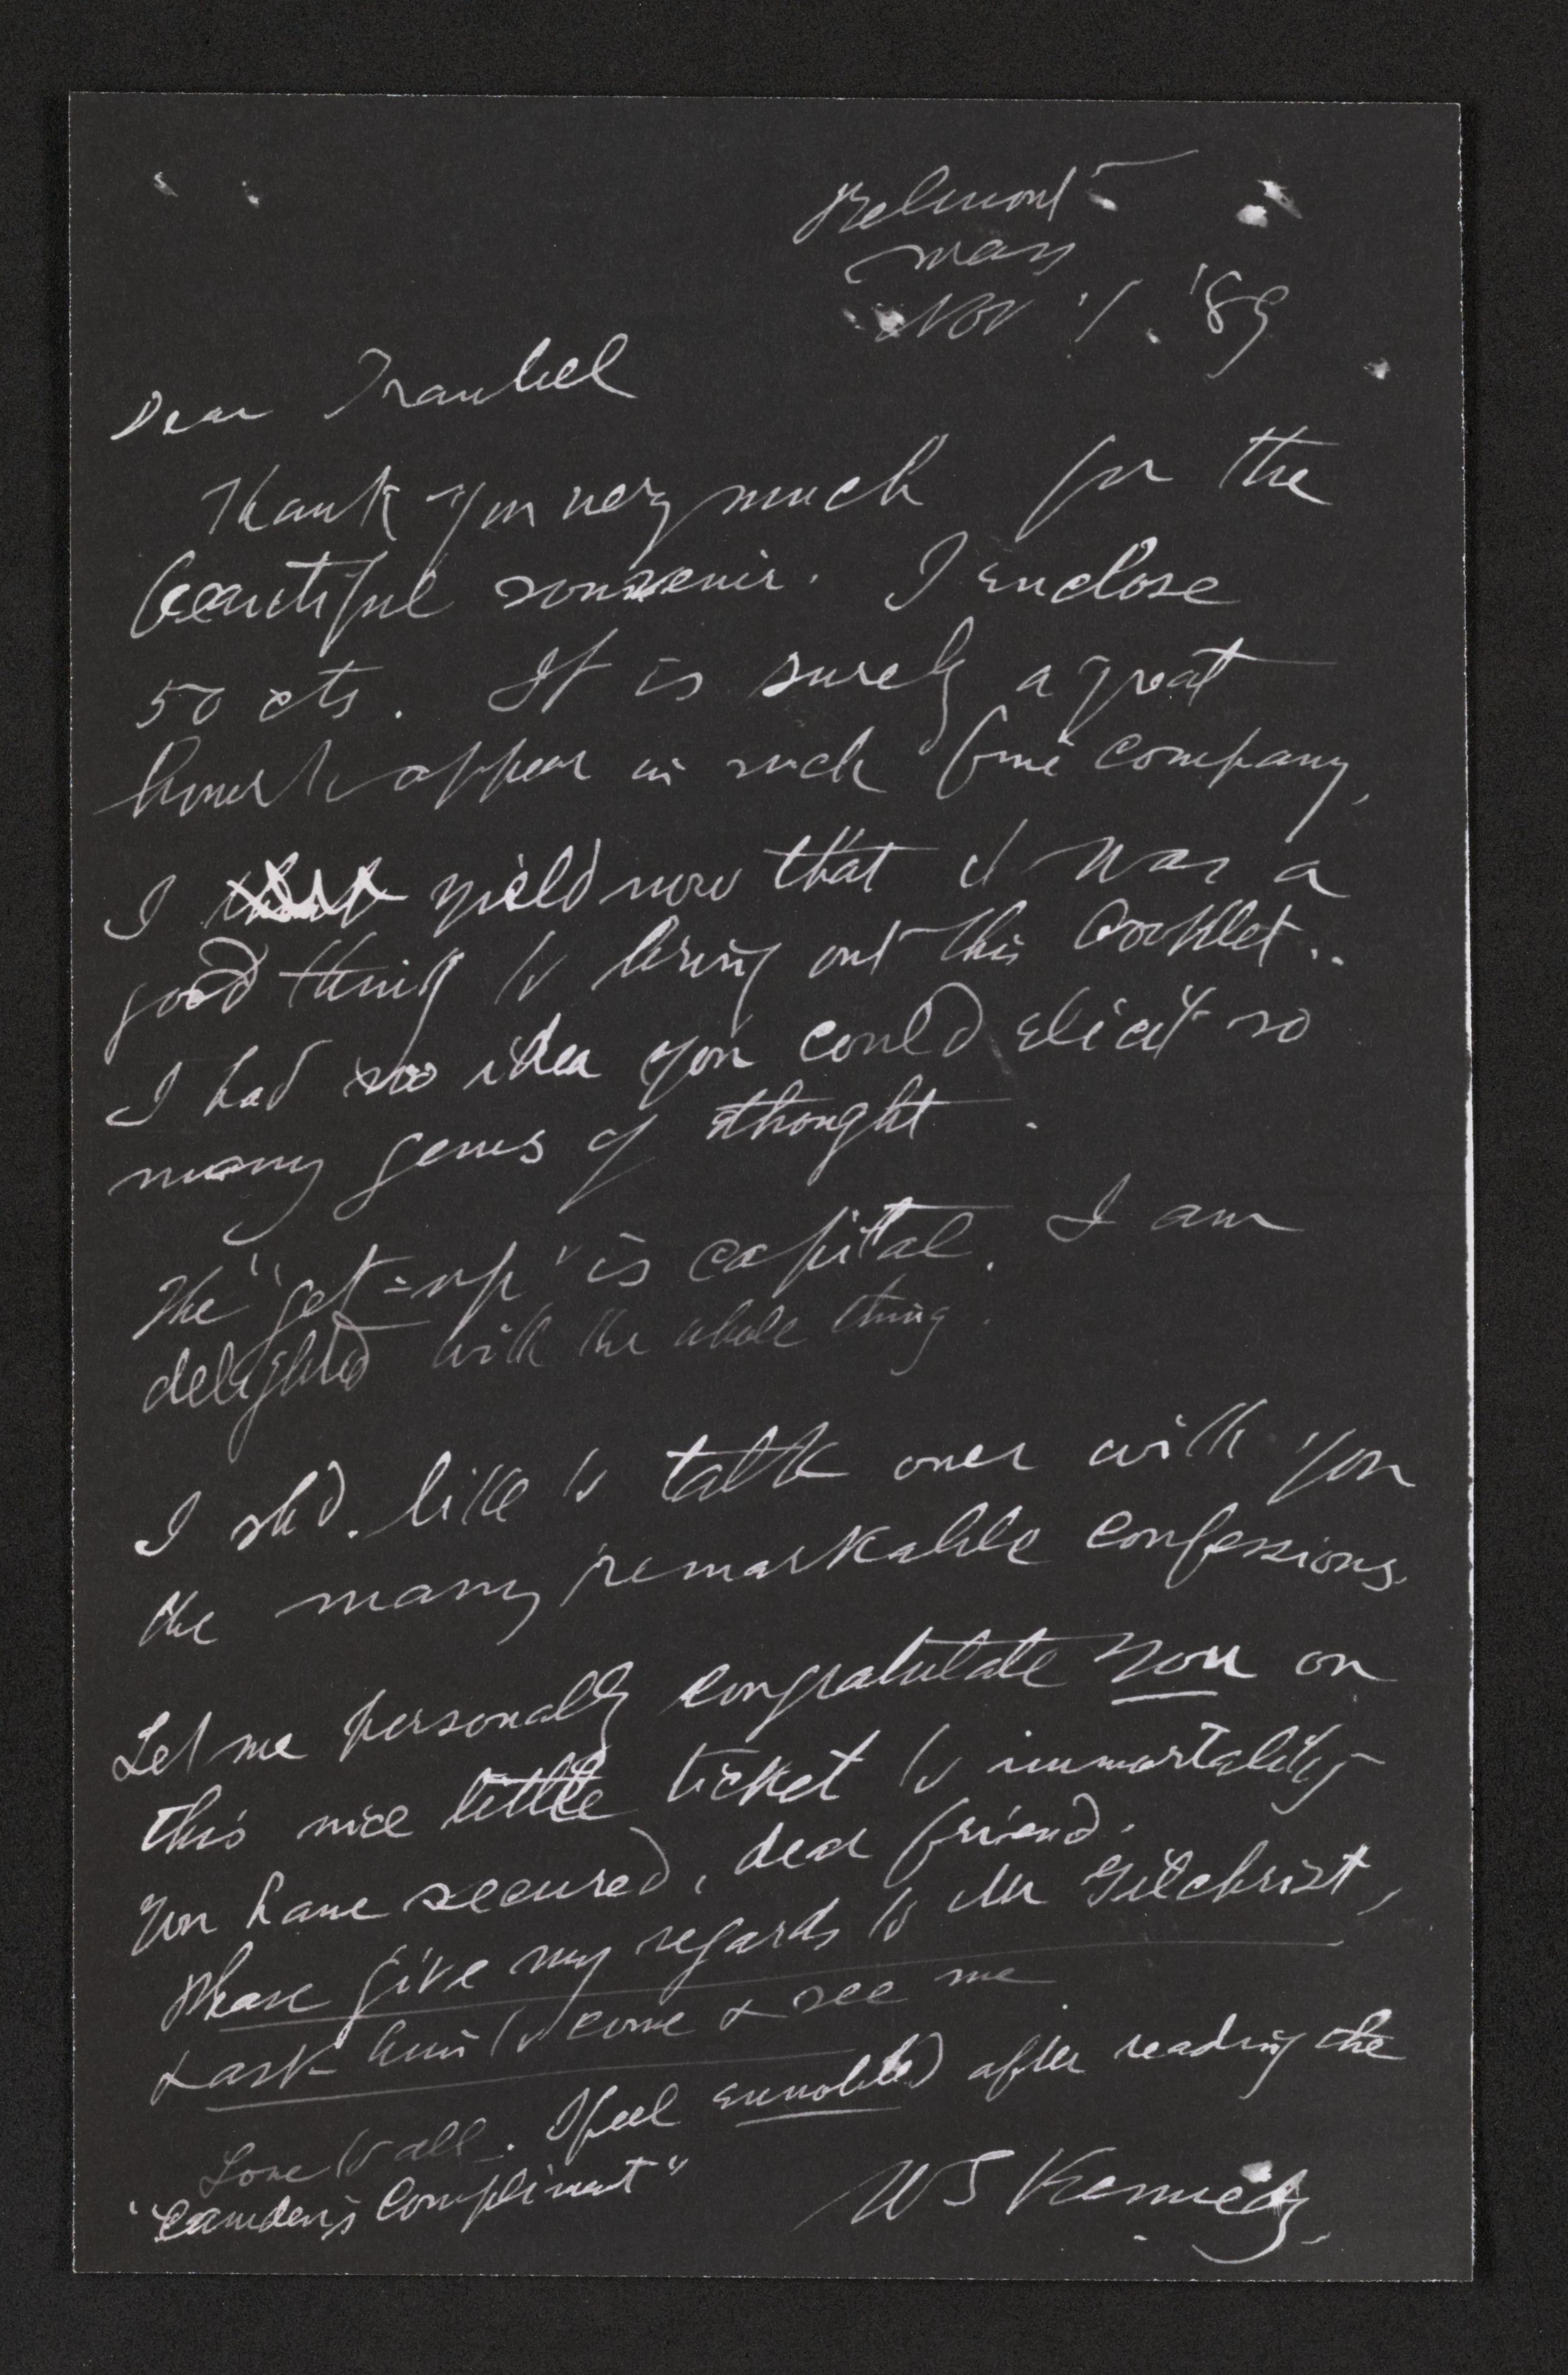 Belmont
Mass
Nov 1. '89
Dear Traubel
Thank you very much for the
beautiful souvenir. I enclose
50 cts. It is surely a great
honor to appear in such fine company,
I yield now that it was a
good thing to bring out this booklet..
I had no idea you could elicit so
many gems of thought.
The "get-up" is capital. I am
delighted with the whole thing.
I shd. like to talk over with you
the many remarkable confessions.
Let me personally congratulate you on
this nice little ticket to immortality
you have secured, dear friend.
Please give my regards to Mr Gilchrist,
& ask him to come & see me
Love to all. I feel ennobled after reading the
"Camden's Compliment"
W S Kennedy.